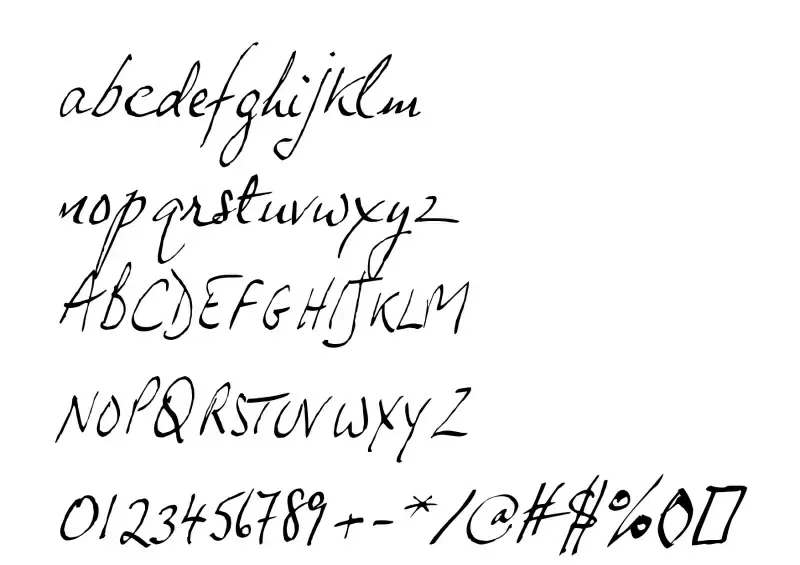 abcdefghijklm
nopqrstuvwxyz
ABCDEFGHIJKLM
NOPQRSTUVWXYZ
0123456789+-*/@#$%